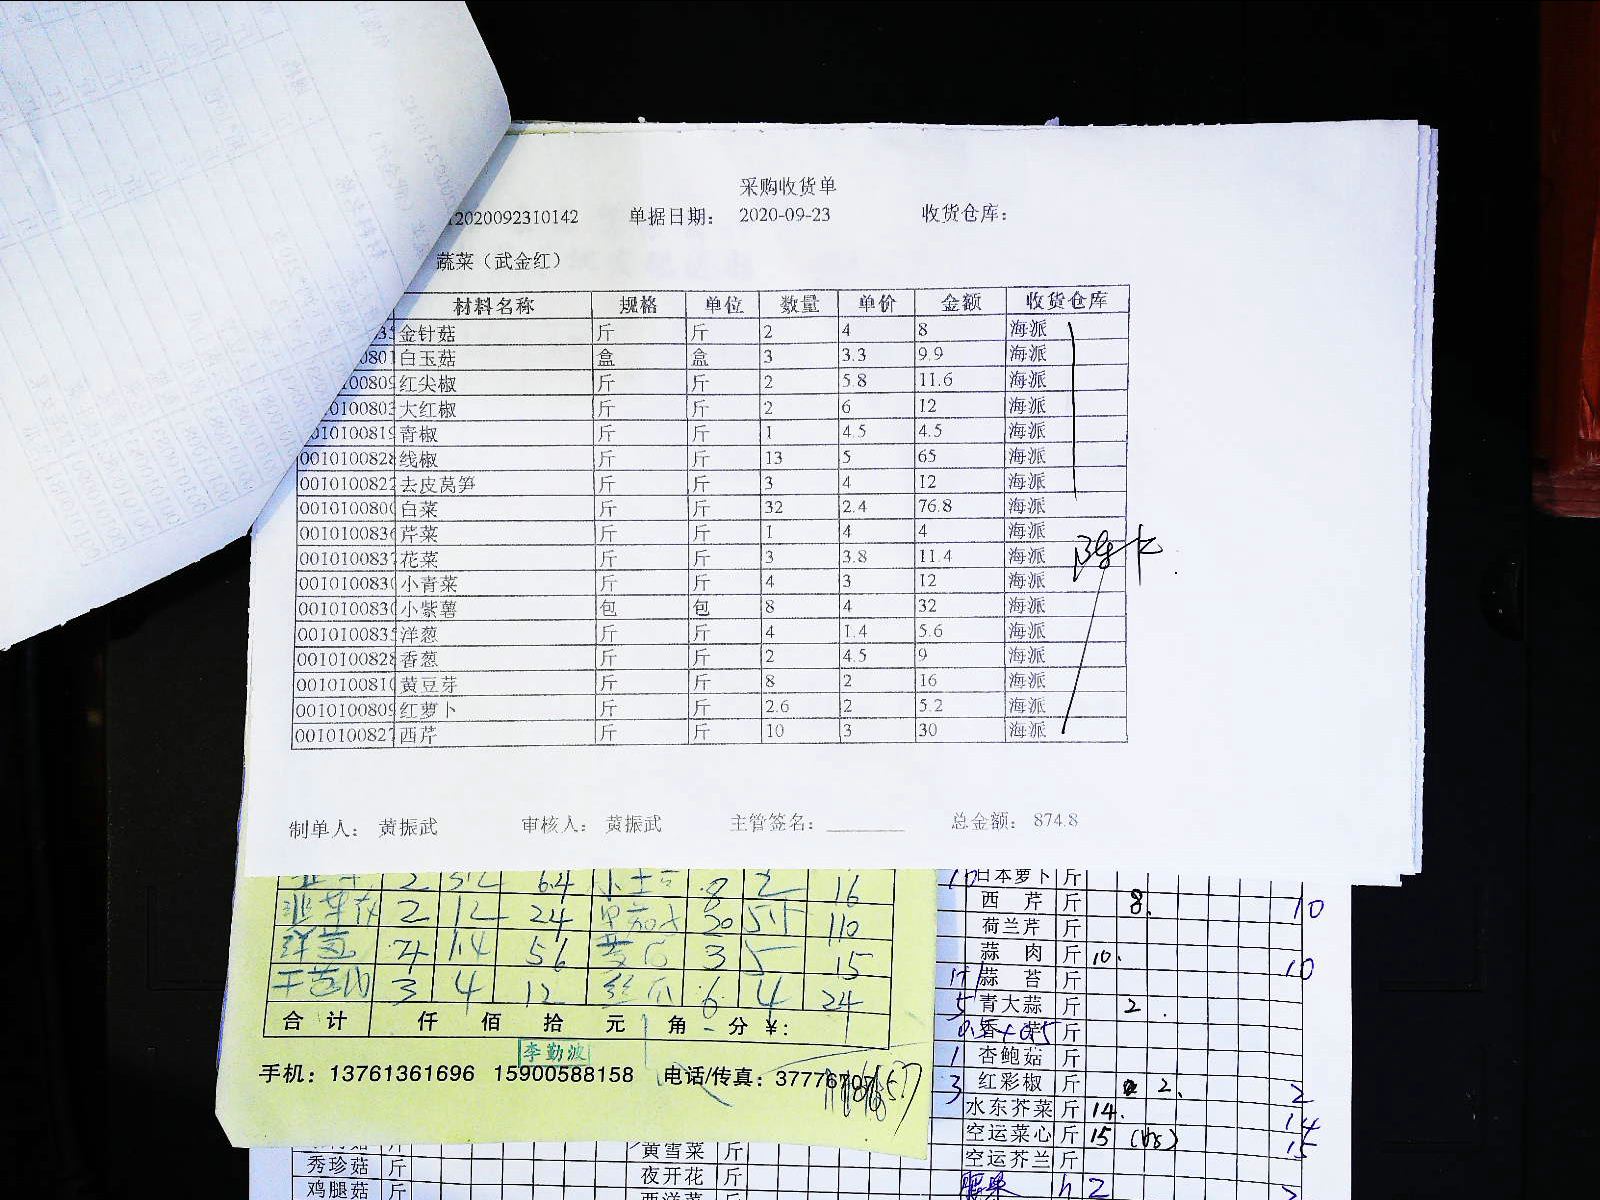 采购收货单
12020092310142 单据日期： 2020-09-23 收货仓库：
蔬菜（武金红）
材料名称 规格 单位 数量 单价 金额 收货仓库
金针菇 斤 斤 2 4 8 海派
0801 白玉菇 盒 盒 3 3.3 9.9 海派
100809 红尖椒 斤 斤 2 5.8 11.6 海派
0100803 大红椒 斤 斤 2 6 12 海派
010100819 青椒 斤 斤 1 4.5 4.5 海派
0010100828 线椒 斤 斤 13 5 65 海派
0010100822 去皮莴笋 斤 斤 3 4 12 海派
0010100800 白菜 斤 斤 32 2.4 76.8 海派
0010100836 芹菜 斤 斤 1 4 4 海派
0010100837 花菜 斤 斤 3 3.8 11.4 海派
0010100830 小青菜 斤 斤 4 3 12 海派
0010100830 小紫薯 包 包 8 4 32 海派
0010100835 洋葱 斤 斤 4 1.4 5.6 海派
0010100828 香葱 斤 斤 2 4.5 9 海派
0010100810 黄豆芽 斤 斤 8 2 16 海派
0010100809 红萝卜 斤 斤 2.6 2 5.2 海派
0010100827 西芹 斤 斤 10 3 30 海派
制单人： 黄振武 审核人： 黄振武 主管签名：________ 总金额： 874.8
2 3.2 6.4 8 2 16
2 12 24 20 5.5 110
4 1.4 5.6 3 5 15
3 4 12 丝瓜 6 4 24
合计 仟 佰 拾 元 角 分 ¥:
李勤波
手机：13761361696 15900588158 电话/传真：37776707
日本萝卜 斤
西芹 斤 8. 10
荷兰芹 斤
蒜肉 斤 10. 10
蒜苔 斤
5 青大蒜 斤 2.
斤
1 杏鲍菇 斤
3 红彩椒 斤 2. 2
水东芥菜 斤 14. 14
空运菜心 斤 15 15
空运芥兰 斤
腰果 h 2
黄雪菜 斤
秀珍菇 斤 夜开花 斤
鸡腿菇 斤 西洋菜 斤